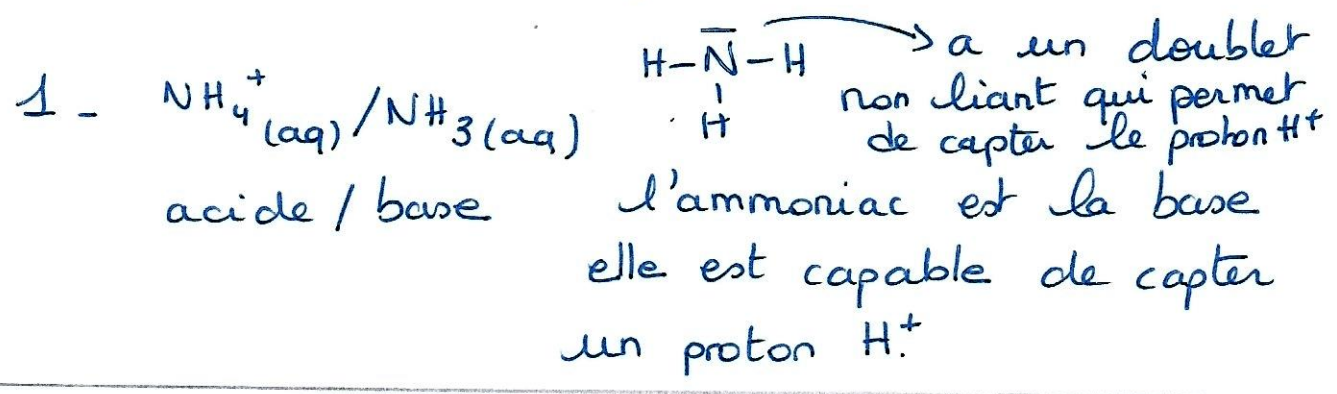 1 - NH₄⁺(aq) / NH₃(aq)
acide / base
H-N̅-H
H
a un doublet
non liant qui permet
de capter le proton H⁺
l'ammoniac est la base
elle est capable de capter
un proton H⁺.